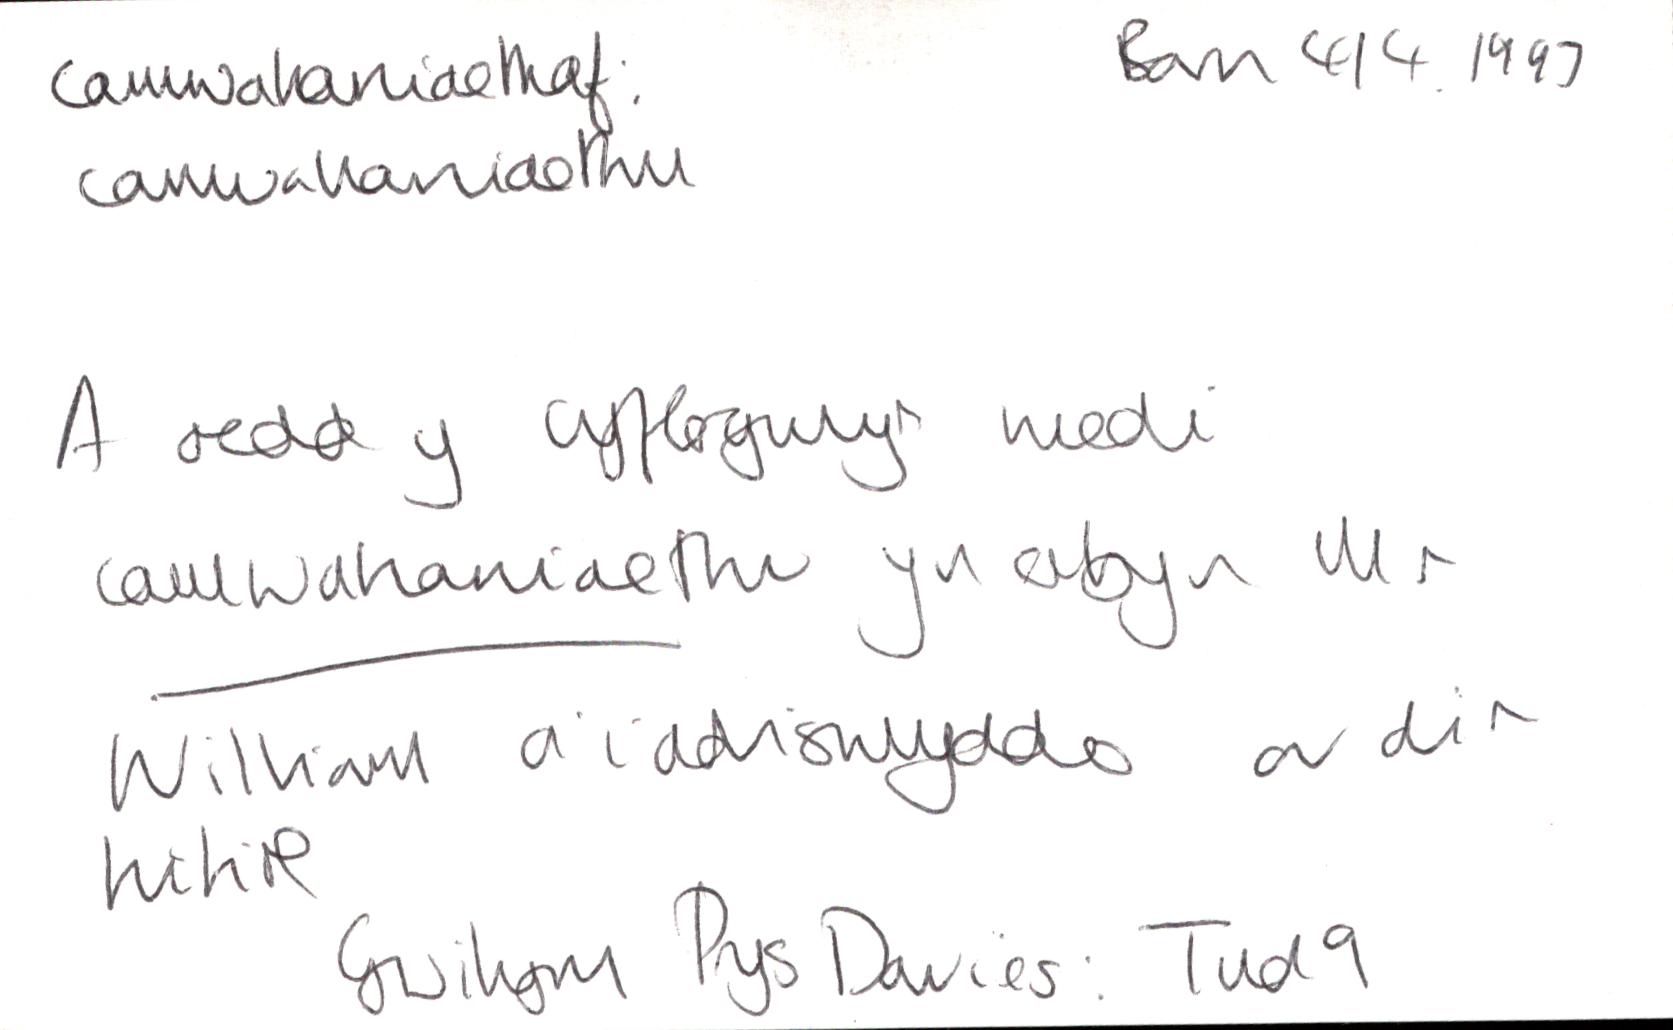 camwahaniaethaf: Barn 414. 1997
camwahaniaethu
A oedd y cyflogwyr wedi
camwahaniaethu yn erbyn Mr
William a'i ddiswyddo ar dir
hiliol
Gwilym Prys Davies: Tud 9